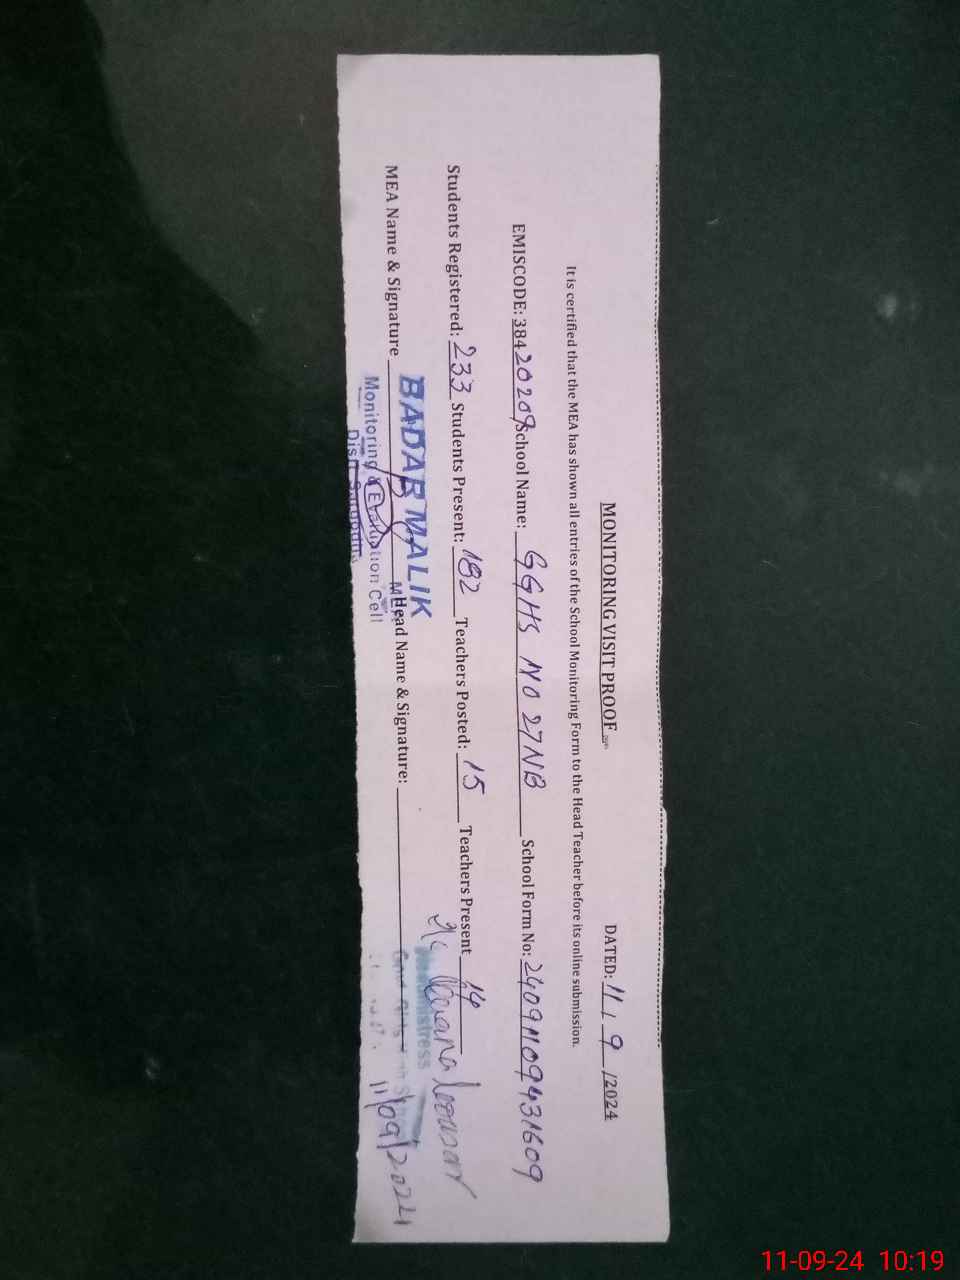 MONITORING VISIT PROOF
DATED: 11 / 9 /2024
It is certified that the MEA has shown all entries of the School Monitoring Form to the Head Teacher before its online submission.
EMISCODE: 38420209 School Name: GGHS NO 27NB School Form No: 24091109431609
Students Registered: 233 Students Present: 182 Teachers Posted: 15 Teachers Present 14
MEA Name & Signature Head Name & Signature:
BADAR MALIK
MEA
Monitoring & Evaluation Cell
Distt Sargodha
Headmistress
11/09/2024
11-09-24 10:19